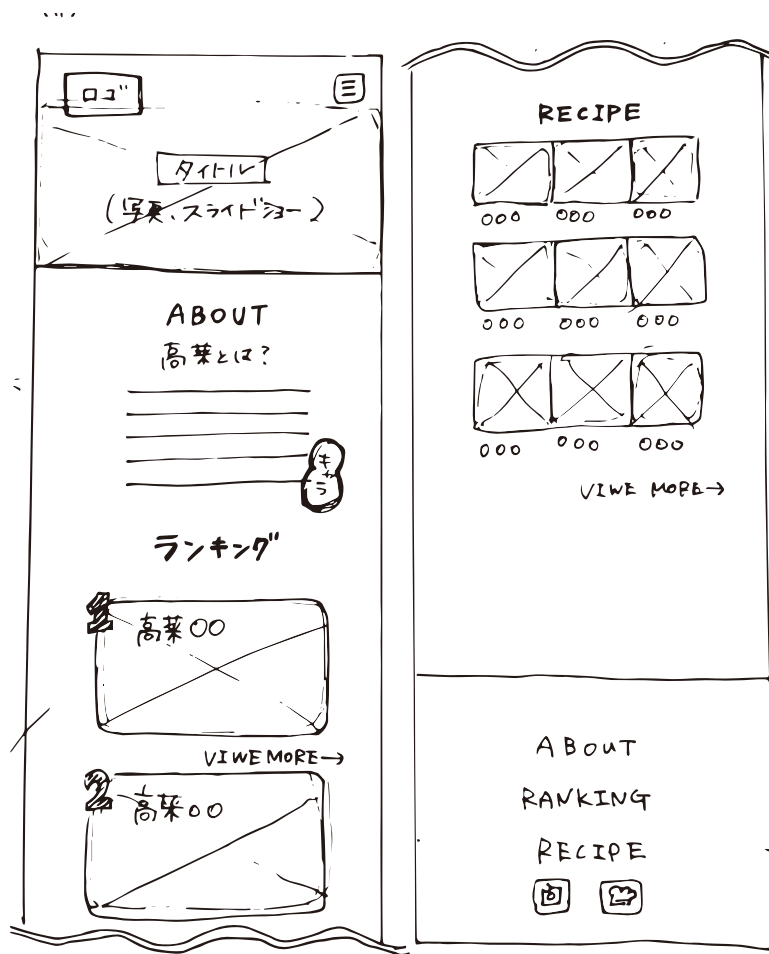 ロゴ
タイトル
(写真、スライドショー)
ABOUT
高菜とは?
キャラ
ランキング
1
高菜〇〇
VIWE MORE→
2
高菜〇〇
RECIPE
〇〇〇 〇〇〇 〇〇〇
〇〇〇 〇〇〇 〇〇〇
〇〇〇 〇〇〇 〇〇〇
VIWE MORE→
ABOUT
RANKING
RECIPE